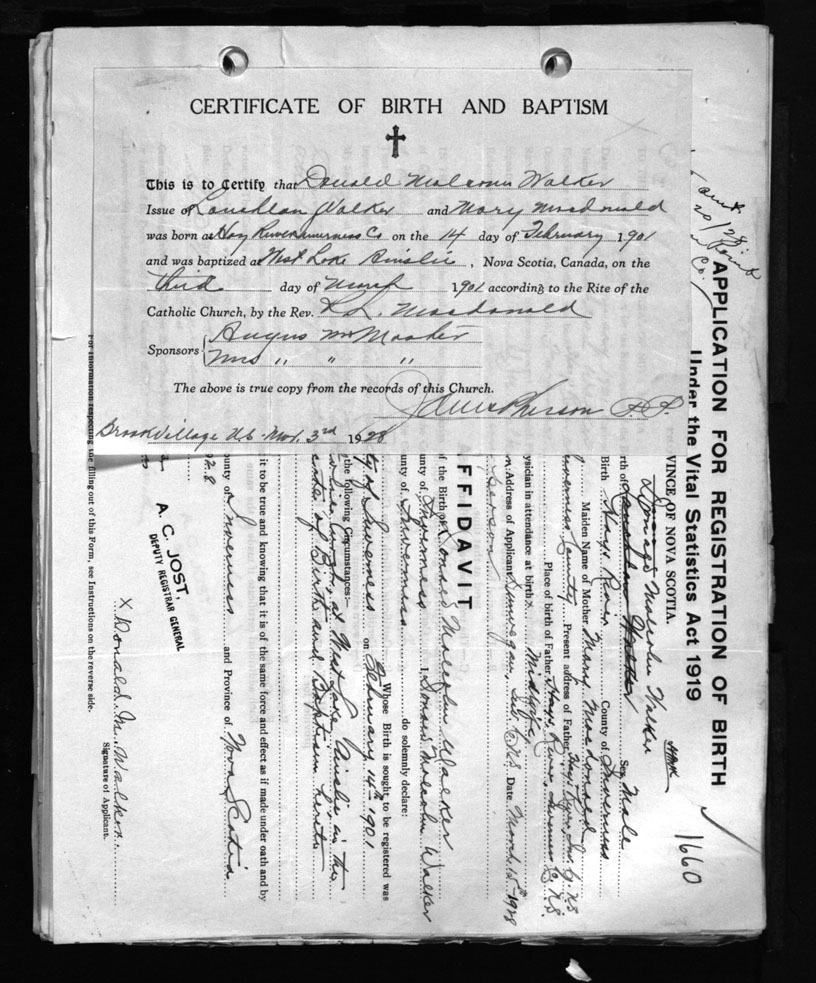 CERTIFICATE OF BIRTH AND BAPTISM
This is to Certify that Donald Malcolm Walker
Issue of Lauchlan Walker and Mary Macdonald
was born at Hay River Inverness Co on the 14 day of February 1901
and was baptized at West Lake Ainslie, Nova Scotia, Canada, on the
third day of March 1901 according to the Rite of the
Catholic Church, by the Rev. Macdonald
Sponsors Angus
Mrs " " "
The above is true copy from the records of this Church.
P.P.
Brook Village N.S. Mar. 3rd 1928
APPLICATION FOR REGISTRATION OF BIRTH
Under the Vital Statistics Act 1919
1660
VINCE OF NOVA SCOTIA.
Donald Malcolm Walker
rth of Lauchlan Walker Sex Male
Birth Hays River County of Inverness
Maiden Name of Mother Mary Macdonald
Inverness County Present address of Father
Place of birth of Father Hays River Inverness Co. N.S.
ysician in attendance at birth Midwife
n. Address of Applicant Dunvegan, Date March 1928
person
FFIDAVIT
f the Birth of Donald Malcolm Walker
unty of Inverness I, Donald Malcolm Walker
unty of Inverness do solemnly declare:
Whose Birth is sought to be registered was
ty of Inverness on February 14th 1901
the following circumstances:—
at West Lake Ainslie in the
cate of Birth and Baptism hereto
it to be true and knowing that it is of the same force and effect as if made under oath and by
ounty of Inverness and Province of Nova Scotia
A. C. JOST,
DEPUTY REGISTRAR GENERAL
X Donald. M. Walker.
Signature of Applicant.
For information respecting the filling out of this Form, see Instructions on the reverse side.